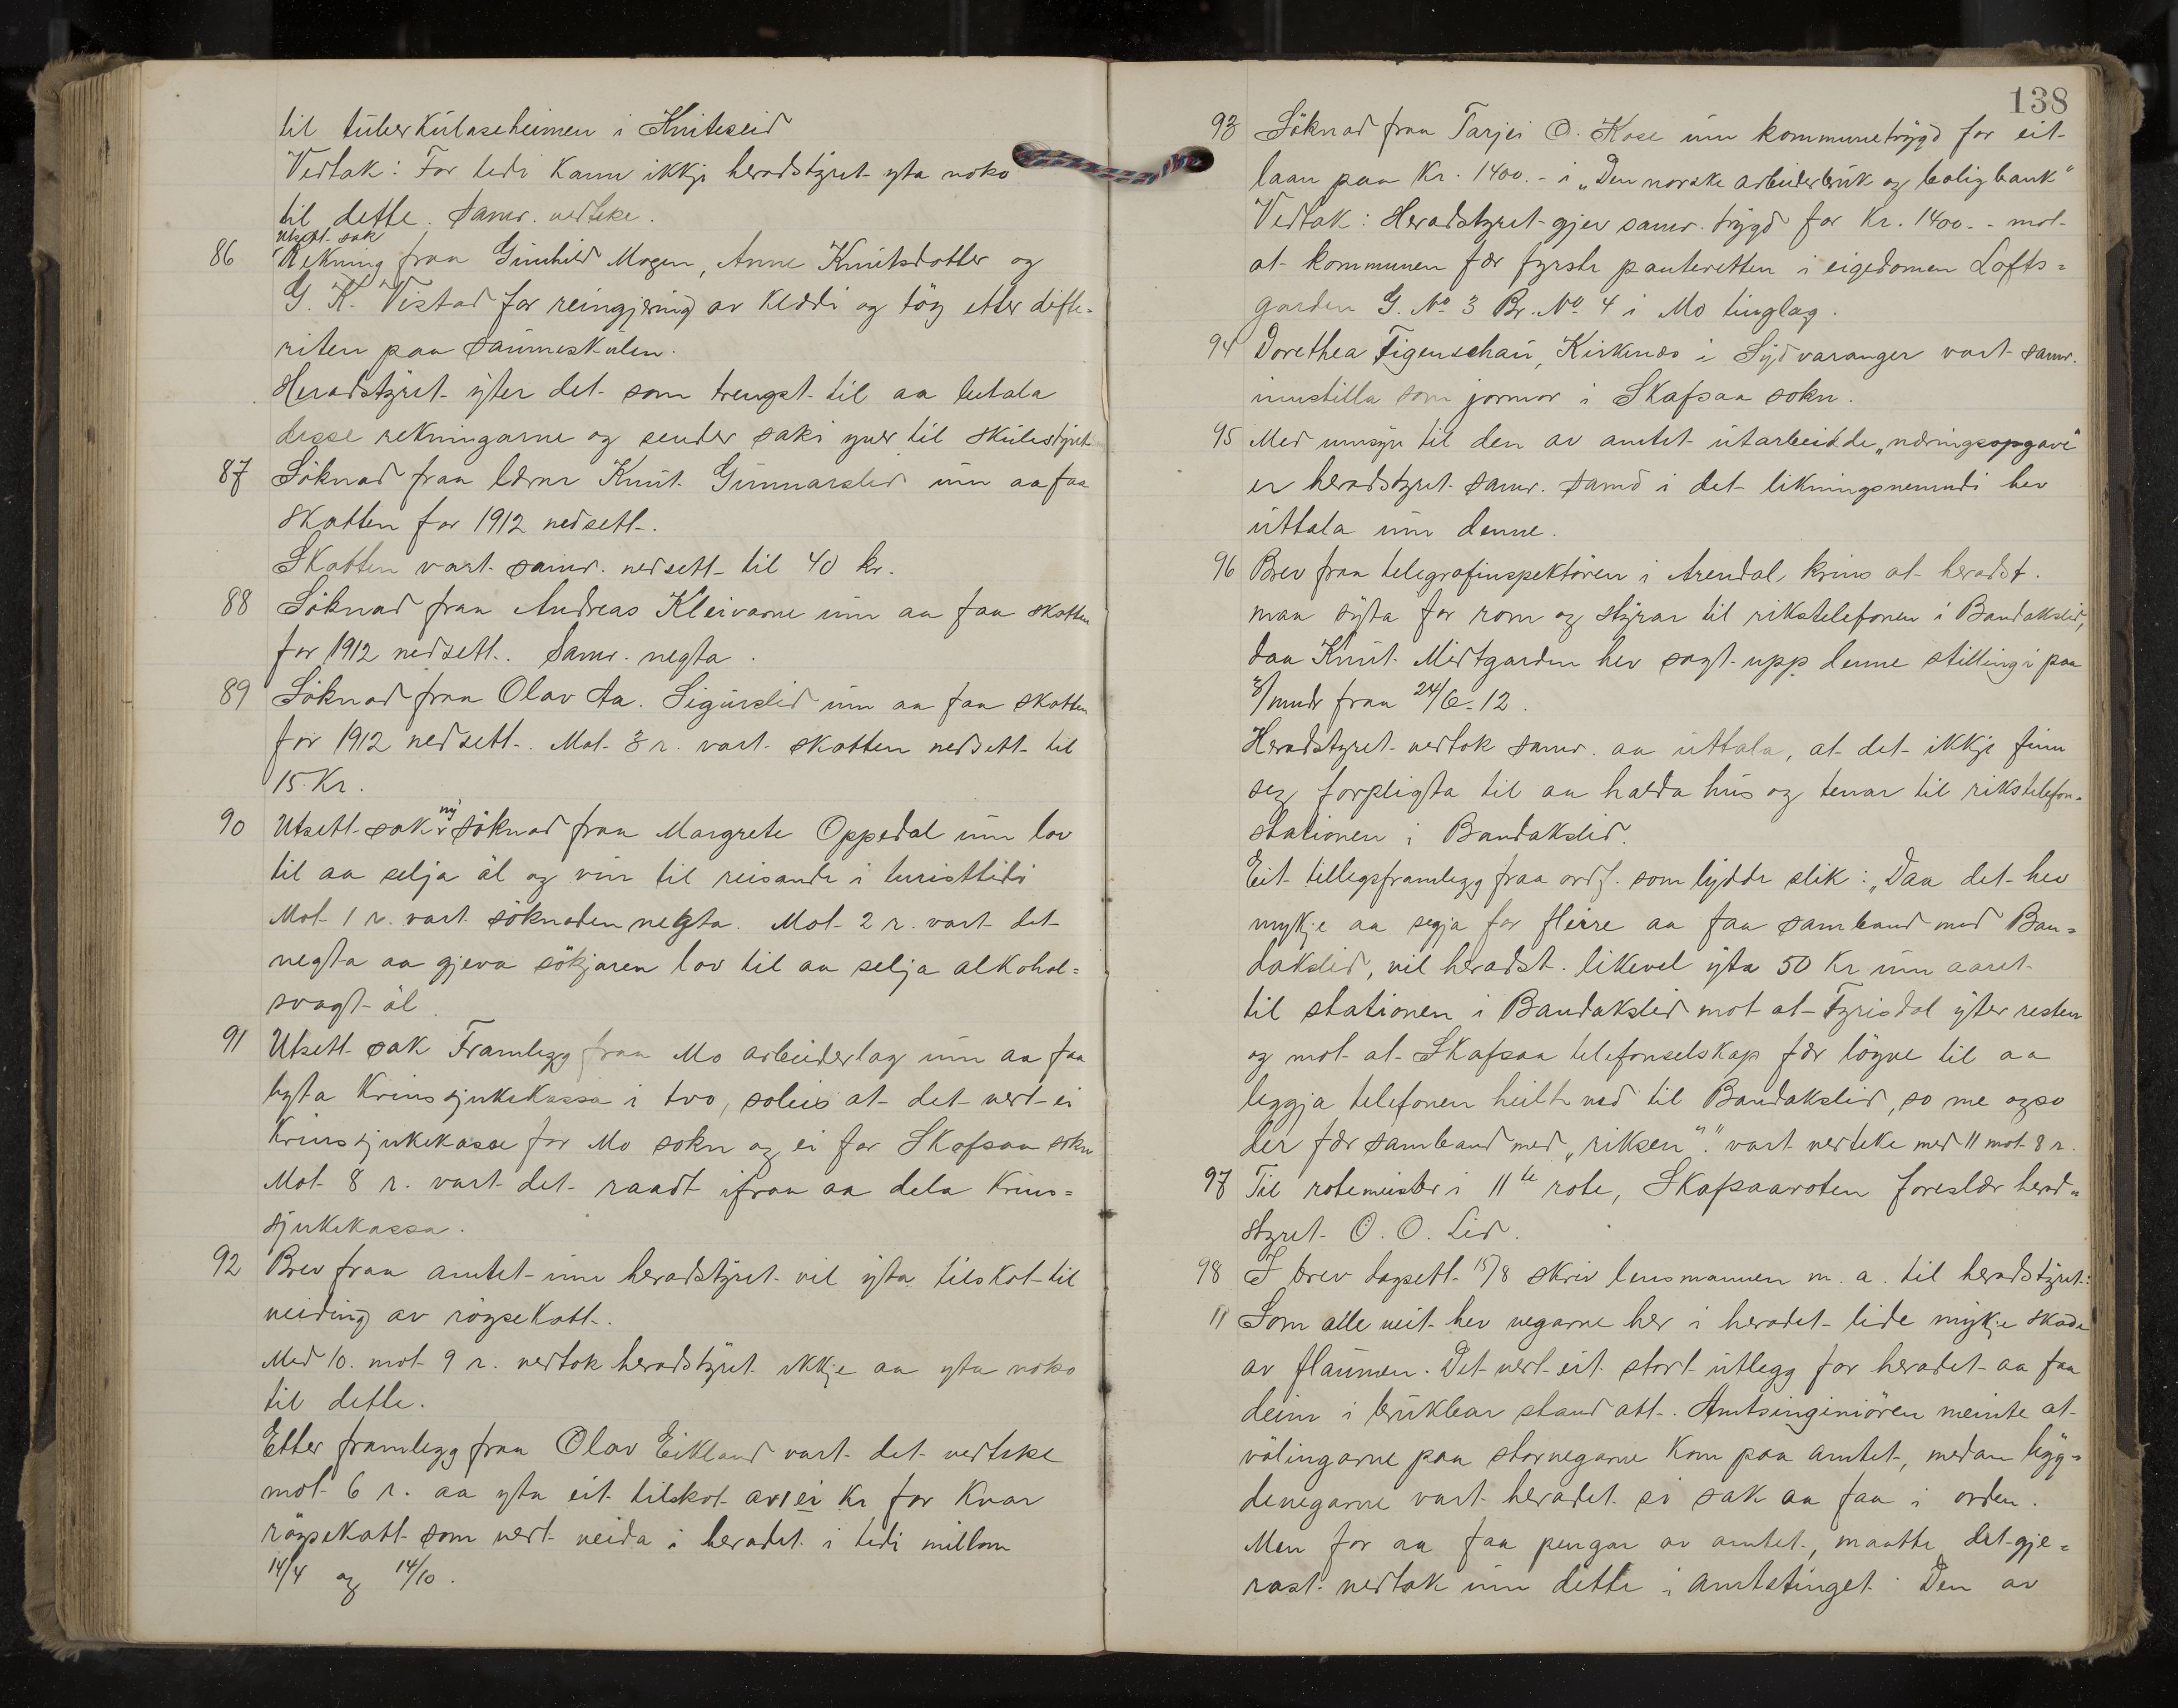 til tuberkulaseheimen i Kviteseid
Vedtak: For tidi kann ikkje heradstyret yta noko
til dette. Samr. vedteke.
Utsett sak
86 Rekning fraa Gunhild Mogen, Anne Knutsdotter og
G. K. Vistad for reingjering av klædi og töy etter difte-
riten paa Saumeskulen.
Heradstyret yter det som trengst til aa betala
desse rekningarne og sender saki yver til skulestyret
87 Söknad fraa lærar Knut Gunnarslid um aa faa
skatten for 1912 nedsett.
Skatten vart samr. nedsett til 40 kr.
88 Söknad fraa Andreas Kleivarne um aa faa skatten
for 1912 nedsett. Samr. negta.
89 Söknad fraa Olav Aa. Sigurslid um aa faa skatten
for 1912 nedsett. Mot 3 r. vart skatten nedsett til
15 Kr.
90 Utsett sak ny söknad fraa Margrete Oppedal um lov
til aa selja öl og vin til reisande i turisttidi
Mot 1 r. vart söknaden negta. Mot 2 r. vart det
negta aa gjeva sökjaren lov til aa selja alkohol=
svagt öl.
91 Utsett sak Framlegg fraa Mo arbeiderlag um aa faa
byta Krinssjukekassa i tvo, soleis at det vert ei
Krinssjukekasse for Mo sokn og ei for Skafsaa sokn
Mot 8 r. vart det raadt ifraa aa dela Krins=
sjukekassa.
92 Brev fraa amtet um heradstyret vil yta tilskot til
veiding av röysekatt.
Med 10. mot 9 r. vedtok heradstyret ikkje aa yta noko
til dette.
Etter framlegg fraa Olav Eikland vart det vedteke
mot 6 r. aa yta eit tilskot av 1 ei kr for kvar
röysekatt som vert veida i heradet i tidi millom
14/4 og 14/10.
138
93 Söknad fraa Tarjei O. Kose um kommunetrygd for eit
laan paa Kr. 1400.- i „Den norske arbeiderbruk og boligbank"
Vedtak: Heradstyret gjev samr. trygd for Kr. 1400.- mot
at kommunen fær fyrste panteretten i eigedomen Lofts=
garden G. No 3 Br. No 4 i Mo tinglag.
94 Dorethea Figenschau, Kirkenæs i Sydvaranger vart samr.
innstilla som jormor i Skafsaa sokn.
95 Med umsyn til den av amtet utarbeidde „næringsopgave"
er heradstyret samr. samd i det likningsnemndi hev
uttala um denne.
96 Brev fraa telegrafinspektören i Arendal, krins at heradst.
maa syta for rom og styrar til rikstelefonen i Bandakslid,
daa Knut Midtgarden hev sagt upp denne stillingi paa
3/mndr fraa 24/6-12.
Heradstyret vedtok samr. aa uttala, at det ikkje finn
seg forpligta til aa halda hus og tenar til rikstelefon-
stationen i Bandakslid.
Eit tillegsframlegg fraa ordf. som lydde slik: „Daa det hev
mykje aa segja for fleire aa faa samband med Ban=
dakslid, vil heradst. likevel yta 50 Kr um aaret
til stationen i Bandakslid mot at Fyrisdal yter resten
og mot at Skafsaa telefonselskap fær löyve til aa
leggja telefonen heilt ned til Bandakslid, so me ogso
der fær samband med „riksen"." vart vedteke med 11 mot 8 r.
97 Til rotemeister i 11te rote, Skafsaaroten foreslær herad=
styret O. O. Lid.
98 I brev dagsett 15/8 skriv lensmannen m. a. til heradstyret:
" Som alle veit hev vegarne her i heradet lide mykje skade
av flaumen. Det vert eit stort utlegg for heradet aa faa
deim i brukbar stand att. Amtsingeniören meinte at
völingarne paa storvegarne kom paa amtet, medan byg=
devegarne vart heradet si sak aa faa i orden.
Men for aa faa pengar av amtet, maatte det gje=
rast vedtak um dette i amtstinget. Den av